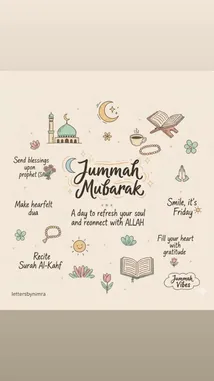 Send blessings
upon
prophet (SAW)
Jummah
Mubarak
Make hearfelt
dua
A day to refresh your soul
and reonnect with ALLAH
Smile, it's
Friday
Recite
Surah Al-Kahf
Fill your heart
with
gratitude
Jummah
Vibes
lettersbynimra